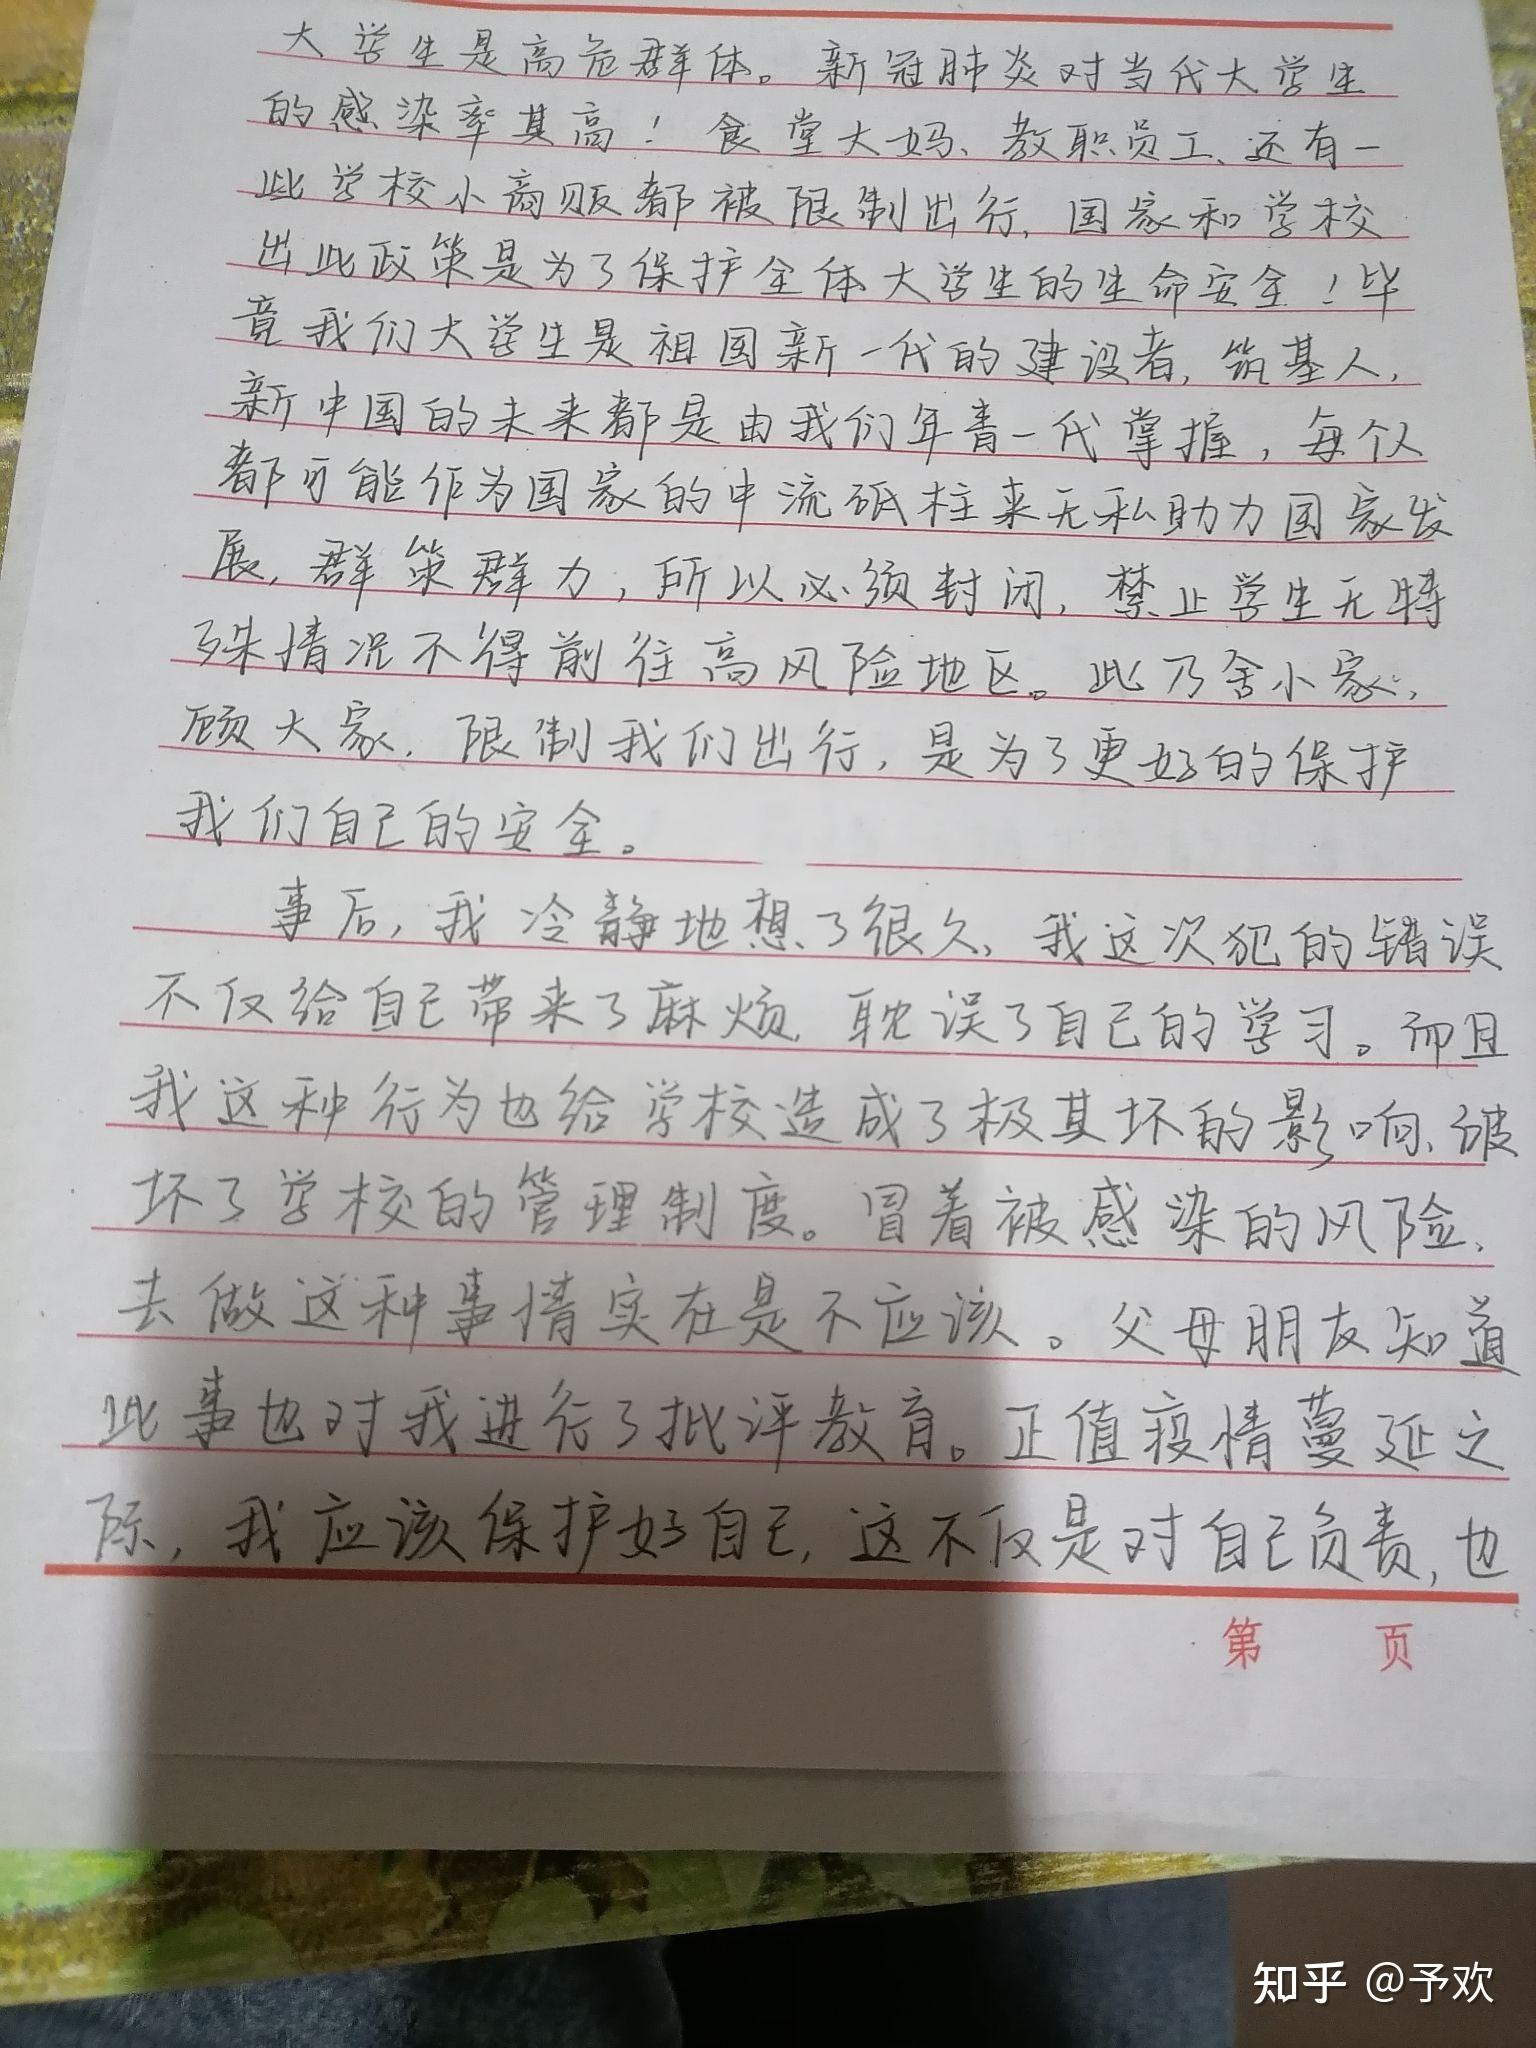 大学生是高危群体。新冠肺炎对当代大学生
的感染率其高！食堂大妈、教职员工、还有一
些学校小商贩都被限制出行，国家和学校
出此政策是为了保护全体大学生的生命安全！毕
竟我们大学生是祖国新一代的建设者，筑基人，
新中国的未来都是由我们年青一代掌握，每个人
都可能作为国家的中流砥柱来无私助力国家发
展，群策群力，所以必须封闭，禁止学生无特
殊情况不得前往高风险地区。此乃舍小家，
顾大家，限制我们出行，是为了更好的保护
我们自己的安全。
事后，我冷静地想了很久，我这次犯的错误
不仅给自己带来了麻烦，耽误了自己的学习。而且
我这种行为也给学校造成了极其坏的影响，破
坏了学校的管理制度。冒着被感染的风险，
去做这种事情实在是不应该。父母朋友知道
此事也对我进行了批评教育。正值疫情蔓延之
际，我应该保护好自己，这不仅是对自己负责，也
第 页
知乎 @予欢